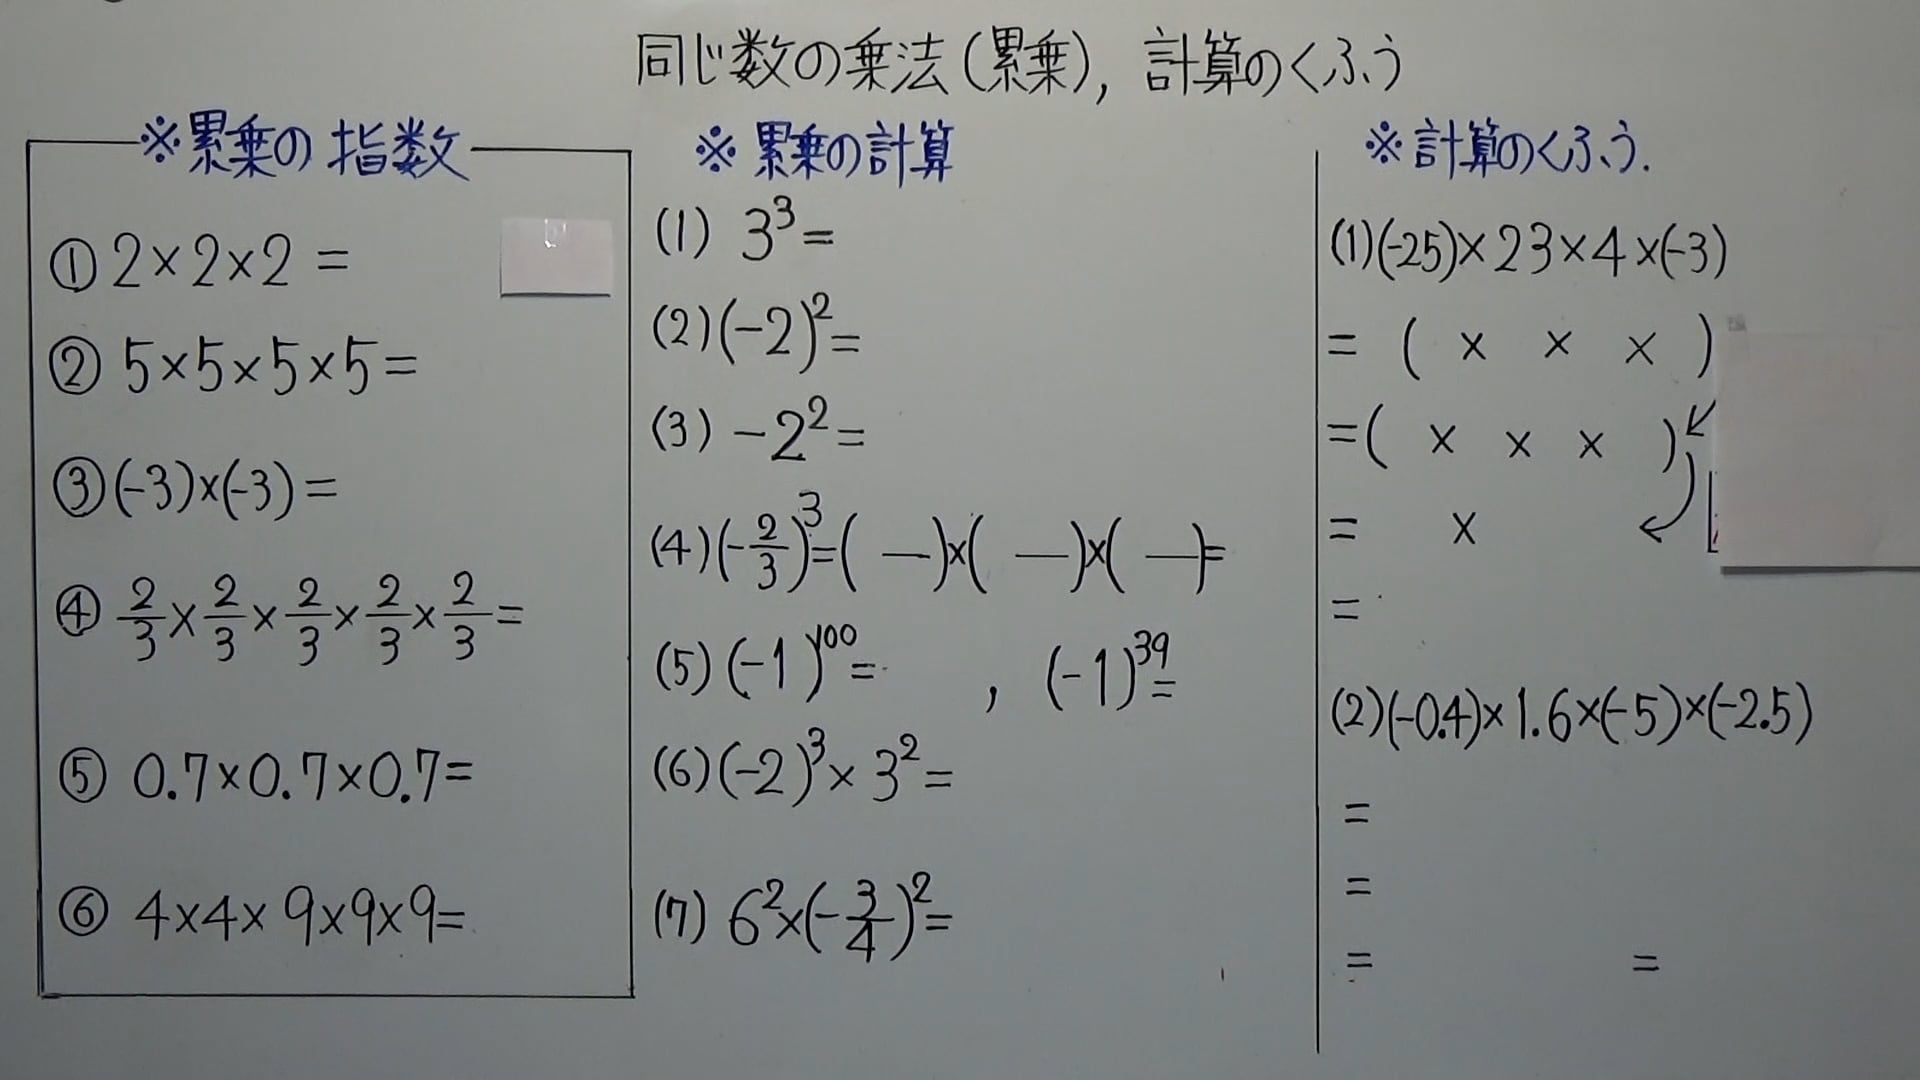 同じ数の乗法(累乗), 計算のくふう
※累乗の指数
① 2×2×2 =
② 5×5×5×5=
③ (-3)×(-3)=
④ 2/3×2/3×2/3×2/3×2/3=
⑤ 0.7×0.7×0.7=
⑥ 4×4×9×9×9=
※累乗の計算
(1) 3³=
(2) (-2)²=
(3) -2²=
(4) (-2/3)³=( — )×( — )×( — )=
(5) (-1)¹⁰⁰= , (-1)³⁹=
(6) (-2)³×3²=
(7) 6²×(-3/4)²=
※計算のくふう.
(1) (-25)×23×4×(-3)
= ( × × × )
= ( × × × )
= ×
=
(2) (-0.4)×1.6×(-5)×(-2.5)
=
=
= =